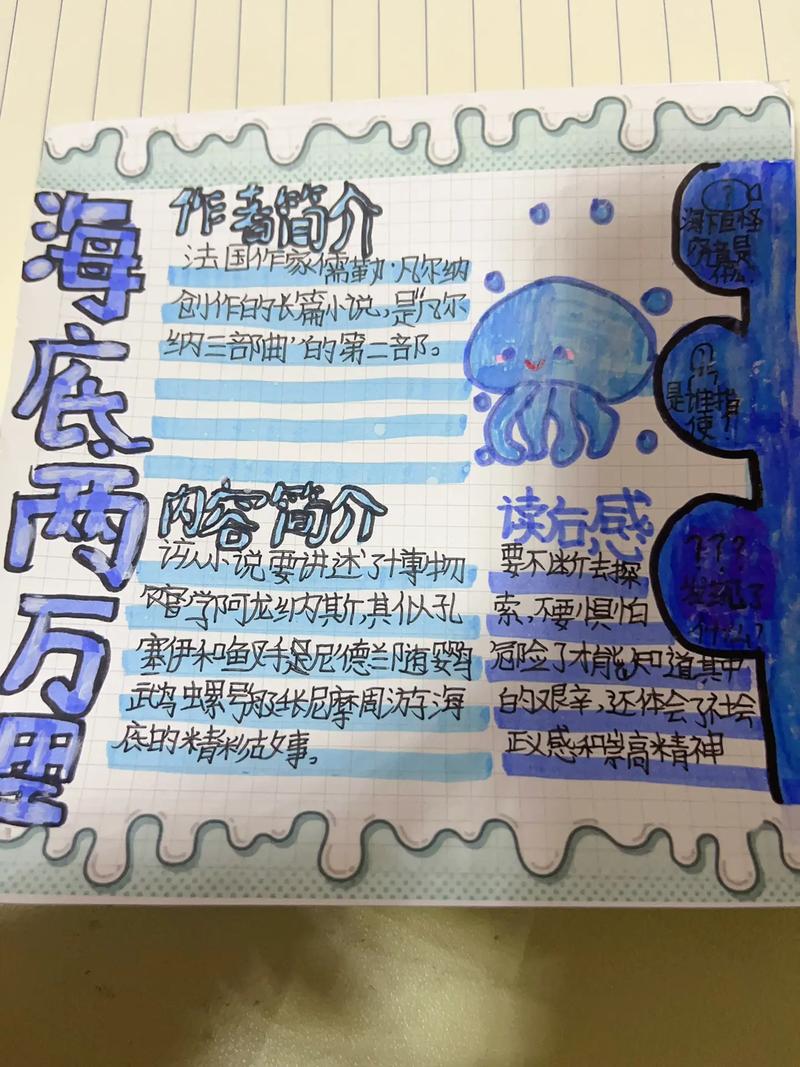 海底两万里
作者简介
法国作家儒勒·凡尔纳
创作的长篇小说,是凡尔
纳三部曲'的第二部。
内容简介
该小说要讲述了博物
官学阿龙纳斯,其仆人孔
塞伊和鱼叉手是尼德兰随婴母
武鸟螺号船长尼摩周游海
底的精彩故事。
读后感
要不断去探
索,不要惧怕
危险了才能知道其中
的艰辛,还体会了社会
正义感和崇高精神
?
海下巨怪
是
什么
是谁指
使
???
发现了
什么